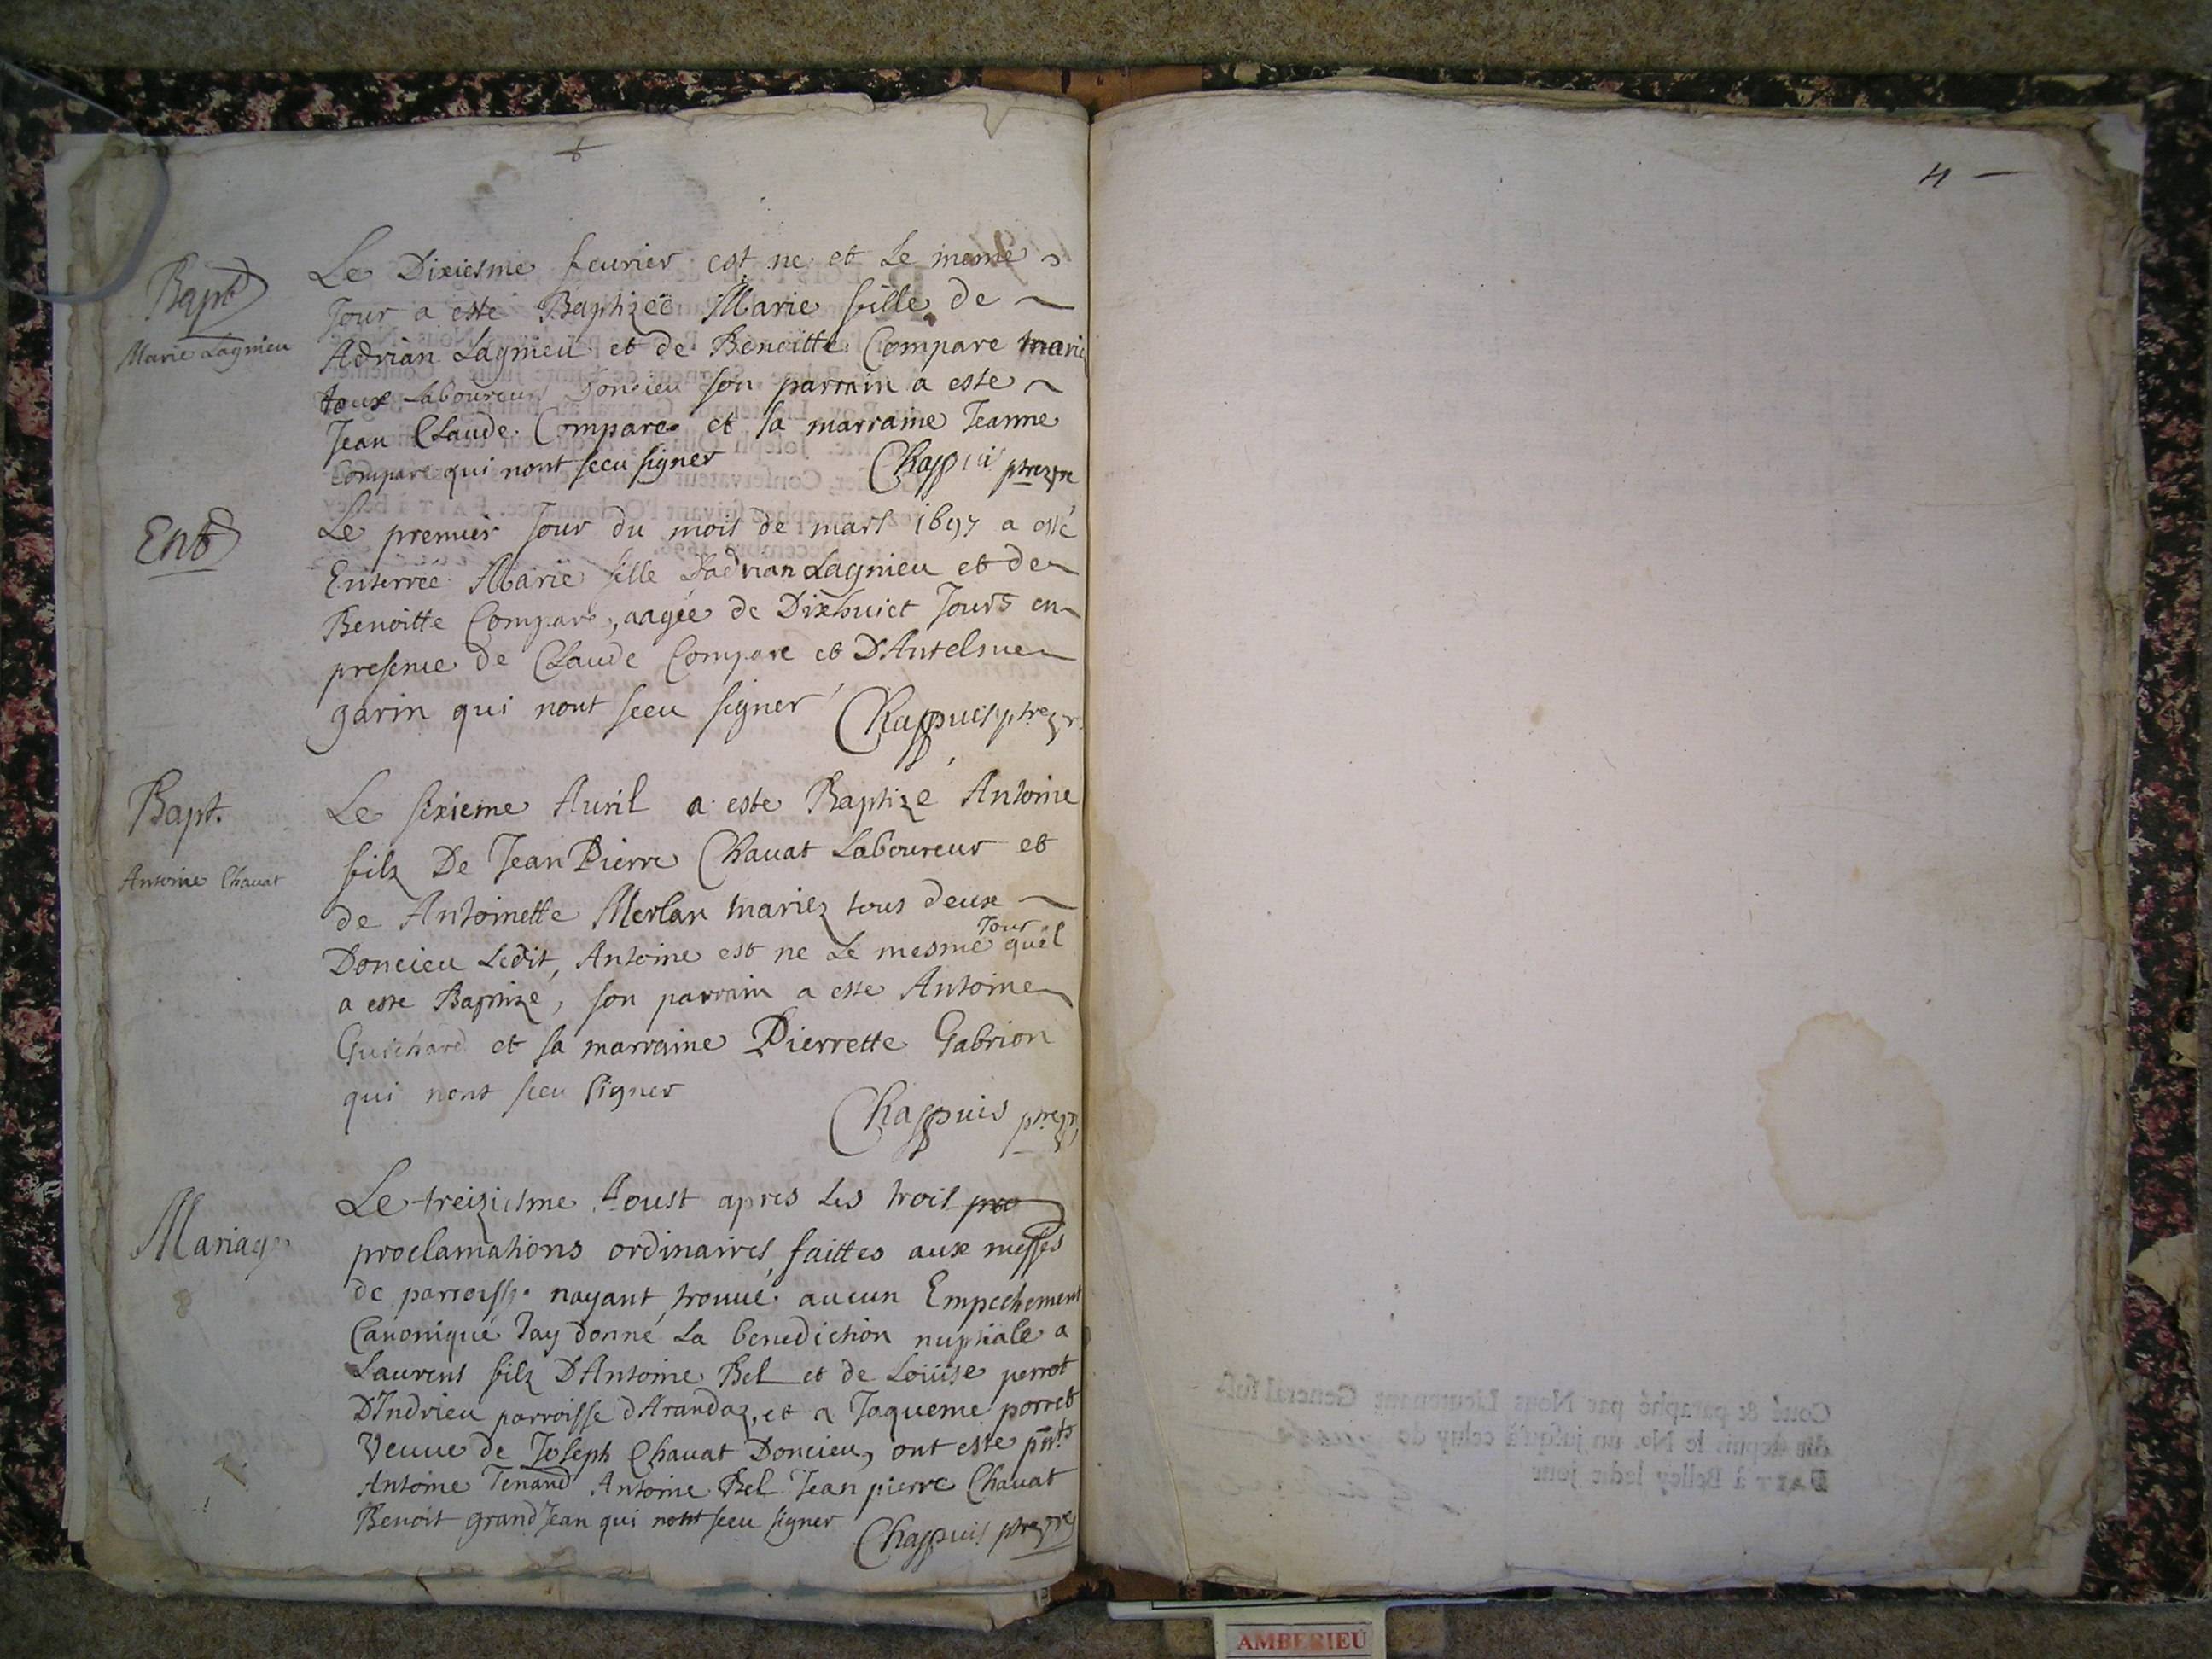 Bapt
Marie Lagnieu
Le Dixiesme feurier est ne et le meme
Jour a esté Baptizeé Marie fille de
Adrian Lagnieu et de Benoitte Compare marie
toux Laboureur Doncieu son parrain a este
Jean Claude Compare et sa marraine Jeanne
Compare qui nont sceu signer Chappuis ptre
Ent
Le premier Jour du mois de mars 1697 a esté
Enterrée Marie fille Dadrian Lagnieu et de
Benoitte Compare, aagée de Dixhuict Jours en
presence de Claude Compare et D'Antelme
garin qui nont sceu signer Chappuis ptre
Bapt.
Antoine Chauat
Le sixieme Auril a este Baptizé Antoine
filz De Jean Pierre Chauat Laboureur et
de Antoinette Merlan mariez tous deux
Doncieu Ledit, Antoine est ne Le mesme Jour quil
a este Baptizé, son parrain a este Antoine
Guichard et sa marraine Pierrette Gabrion
qui nont sceu signer
Chappuis ptre
Mariage
Le treiziesme Aoust apres les trois pro
proclamations ordinaires faittes aux messes
de parroisse nayant trouué aucun Empechement
Canonique Jay donné La benediction nuptiale a
Laurens filz D'Antoine Bel et de Loüise perrot
D'Indrieu parroisse d'Arandaz, et a Jaqueme porret
Veuue de Joseph Chauat Doncieu, ont este pnts
Antoine Tenand Antoine Bel Jean pierre Chauat
Benoit grand Jean qui nont sceu signer Chappuis ptre
4
AMBERIEU